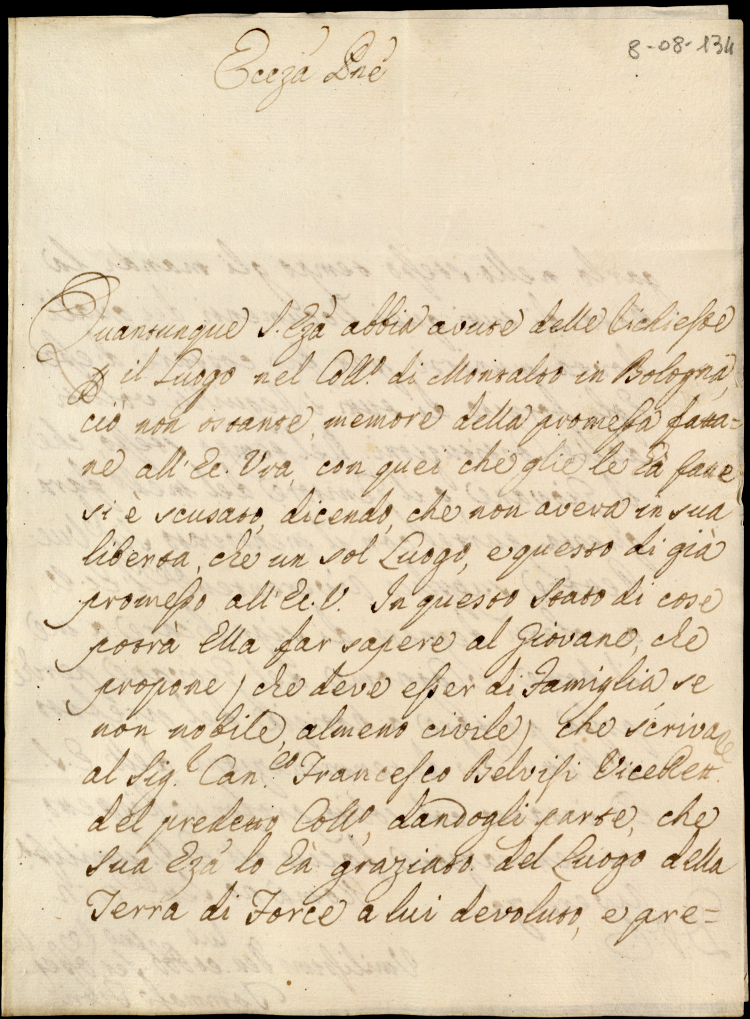 8-08-134
Eccza Pne
Quantunque S. Eza abbia avute delle richieste
p il Luogo nel Coll.o di Montalto in Bologna,
ciò non ostante, memore della promessa fatta=
ne all' Ec. Vra, con quei che glie le hà fatte
si e scusato, dicendo, che non aveva in sua
libertà, che un sol Luogo, e questo di già
promesso all' Ec. V. In questo stato di cose
potrà Ella far sapere al Giovane, che
propone, (che deve esser di Famiglia se
non nobile, almeno civile) che scriva
al Sig.r Can.co Francesco Belvisi ViceRett.e
del predetto Coll.o, dandogli parte, che
Sua Eza lo hà graziato del Luogo della
Terra di Force a lui devoluto, e pre=